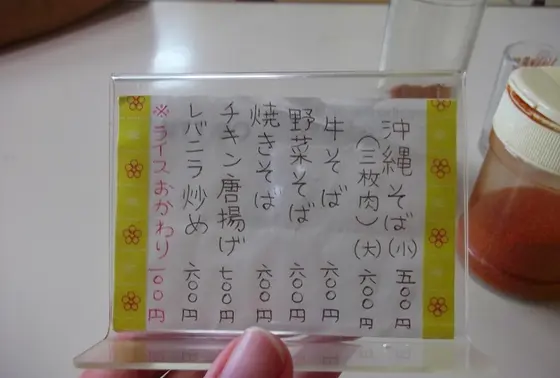 沖縄そば(小) 五〇〇円
(三枚肉)(大) 六〇〇円
牛そば 六〇〇円
野菜そば 六〇〇円
焼きそば 六〇〇円
チキン唐揚げ 七〇〇円
レバニラ炒め 六〇〇円
※ライスおかわり 一〇〇円